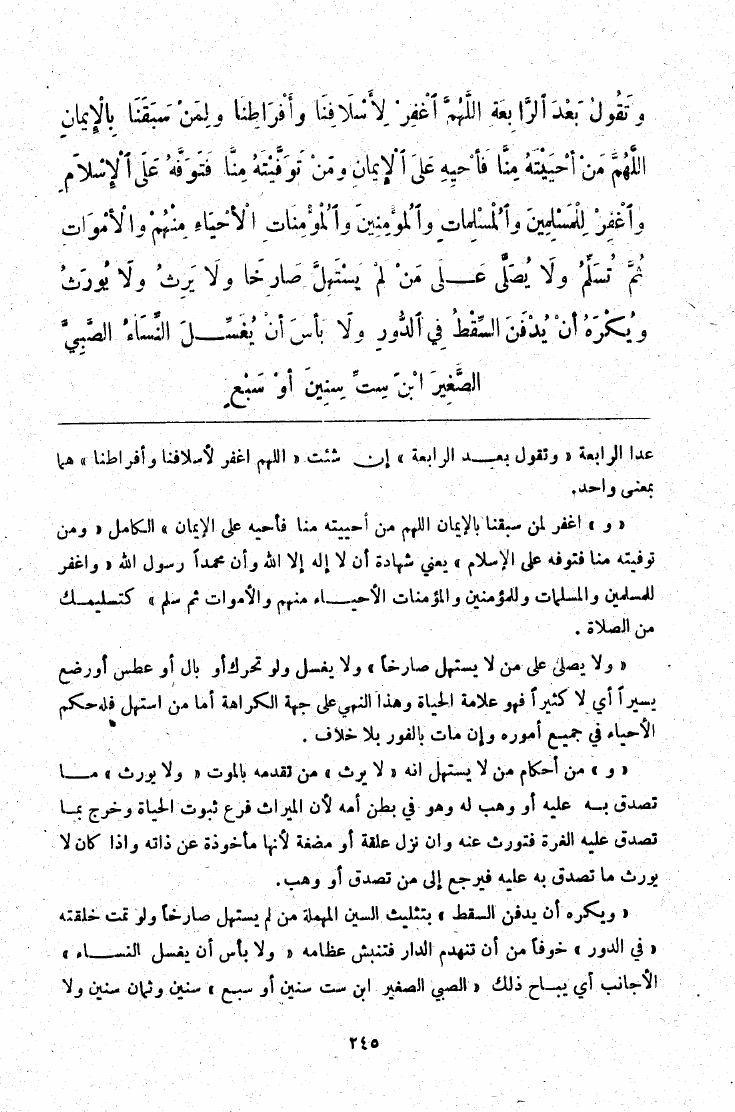 وَتَقُولُ بَعْدَ ٱلرَّابِعَةِ اللَّهُمَّ ٱغْفِرْ لِأَسْلَافِنَا وَأَفْرَاطِنَا وَلِمَنْ سَبَقَنَا بِالْإِيمَانِ
اللَّهُمَّ مَنْ أَحْيَيْتَهُ مِنَّا فَأَحْيِهِ عَلَى ٱلْإِيمَانِ وَمَنْ تَوَفَّيْتَهُ مِنَّا فَتَوَفَّهُ عَلَى ٱلْإِسْلَامِ
وَٱغْفِرْ لِلْمُسْلِمِينَ وَٱلْمُسْلِمَاتِ وَٱلْمُؤْمِنِينَ وَٱلْمُؤْمِنَاتِ الْأَحْيَاءِ مِنْهُمْ وَالْأَمْوَاتِ
ثُمَّ تُسَلِّمُ وَلَا يُصَلَّى عَلَى مَنْ لَمْ يَسْتَهِلَّ صَارِخًا وَلَا يَرِثُ وَلَا يُورَثُ
وَيُكْرَهُ أَنْ يُدْفَنَ السِّقْطُ فِي ٱلدُّورِ وَلَا بَأْسَ أَنْ يُغَسِّلَ النِّسَاءُ الصَّبِيَّ
الصَّغِيرَ ابْنَ سِتِّ سِنِينَ أَوْ سَبْعٍ
عدا الرابعة « وتقول بعد الرابعة » إن شئت « اللهم اغفر لأسلافنا وأفراطنا » هما
بمعنى واحد.
« و » اغفر لمن سبقنا بالإيمان اللهم من أحييته منا فأحيه على الإيمان » الكامل « ومن
توفيته منا فتوفه على الإسلام » يعني شهادة أن لا إله إلا الله وأن محمداً رسول الله « واغفر
للمسلمين والمسلمات وللمؤمنين والمؤمنات الأحياء منهم والأموات ثم سلم » كتسليمك
من الصلاة .
« ولا يصلى على من لا يستهل صارخاً » ولا يغسل ولو تحرك أو بال أو عطس أو رضع
يسيراً أي لا كثيراً فهو علامة الحياة وهذا النهي على جهة الكراهة أما من استهل فله حكم
الأحياء في جميع أموره وإن مات بالفور بلا خلاف .
« و » من أحكام من لا يستهل انه « لا يرث » من تقدمه بالموت « ولا يورث » ما
تصدق به عليه أو وهب له وهو في بطن أمه لأن الميراث فرع ثبوت الحياة وخرج بما
تصدق عليه الغرة فتورث عنه وان نزل علقة أو مضغة لأنها مأخوذة عن ذاته واذا كان لا
يورث ما تصدق به عليه فيرجع إلى من تصدق أو وهب.
« ويكره أن يدفن السقط » بتثليث السين المهملة من لم يستهل صارخاً ولو تمت خلقته
« في الدور » خوفاً من أن تنهدم الدار فتنبش عظامه « ولا بأس أن يغسل النساء »
الأجانب أي يباح ذلك « الصبي الصغير ابن ست سنين أو سبع » سنين وثمان سنين ولا
٢٤٥